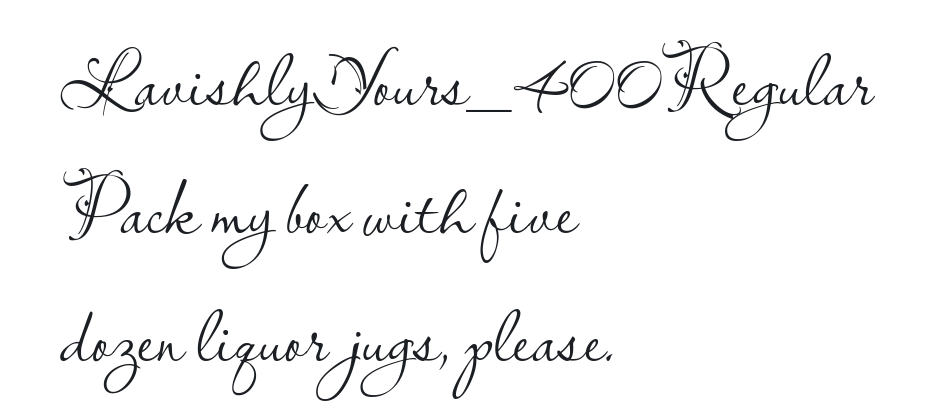 LavishlyYours_400Regular
Pack my box with five
dozen liquor jugs, please.